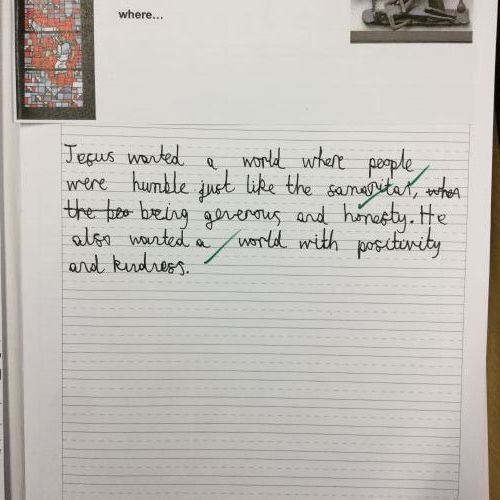 where...
Jesus wanted a world where people
were humble just like the samaritan, when
the beo being generous and honesty. He
also wanted a world with positivity
and kindness.